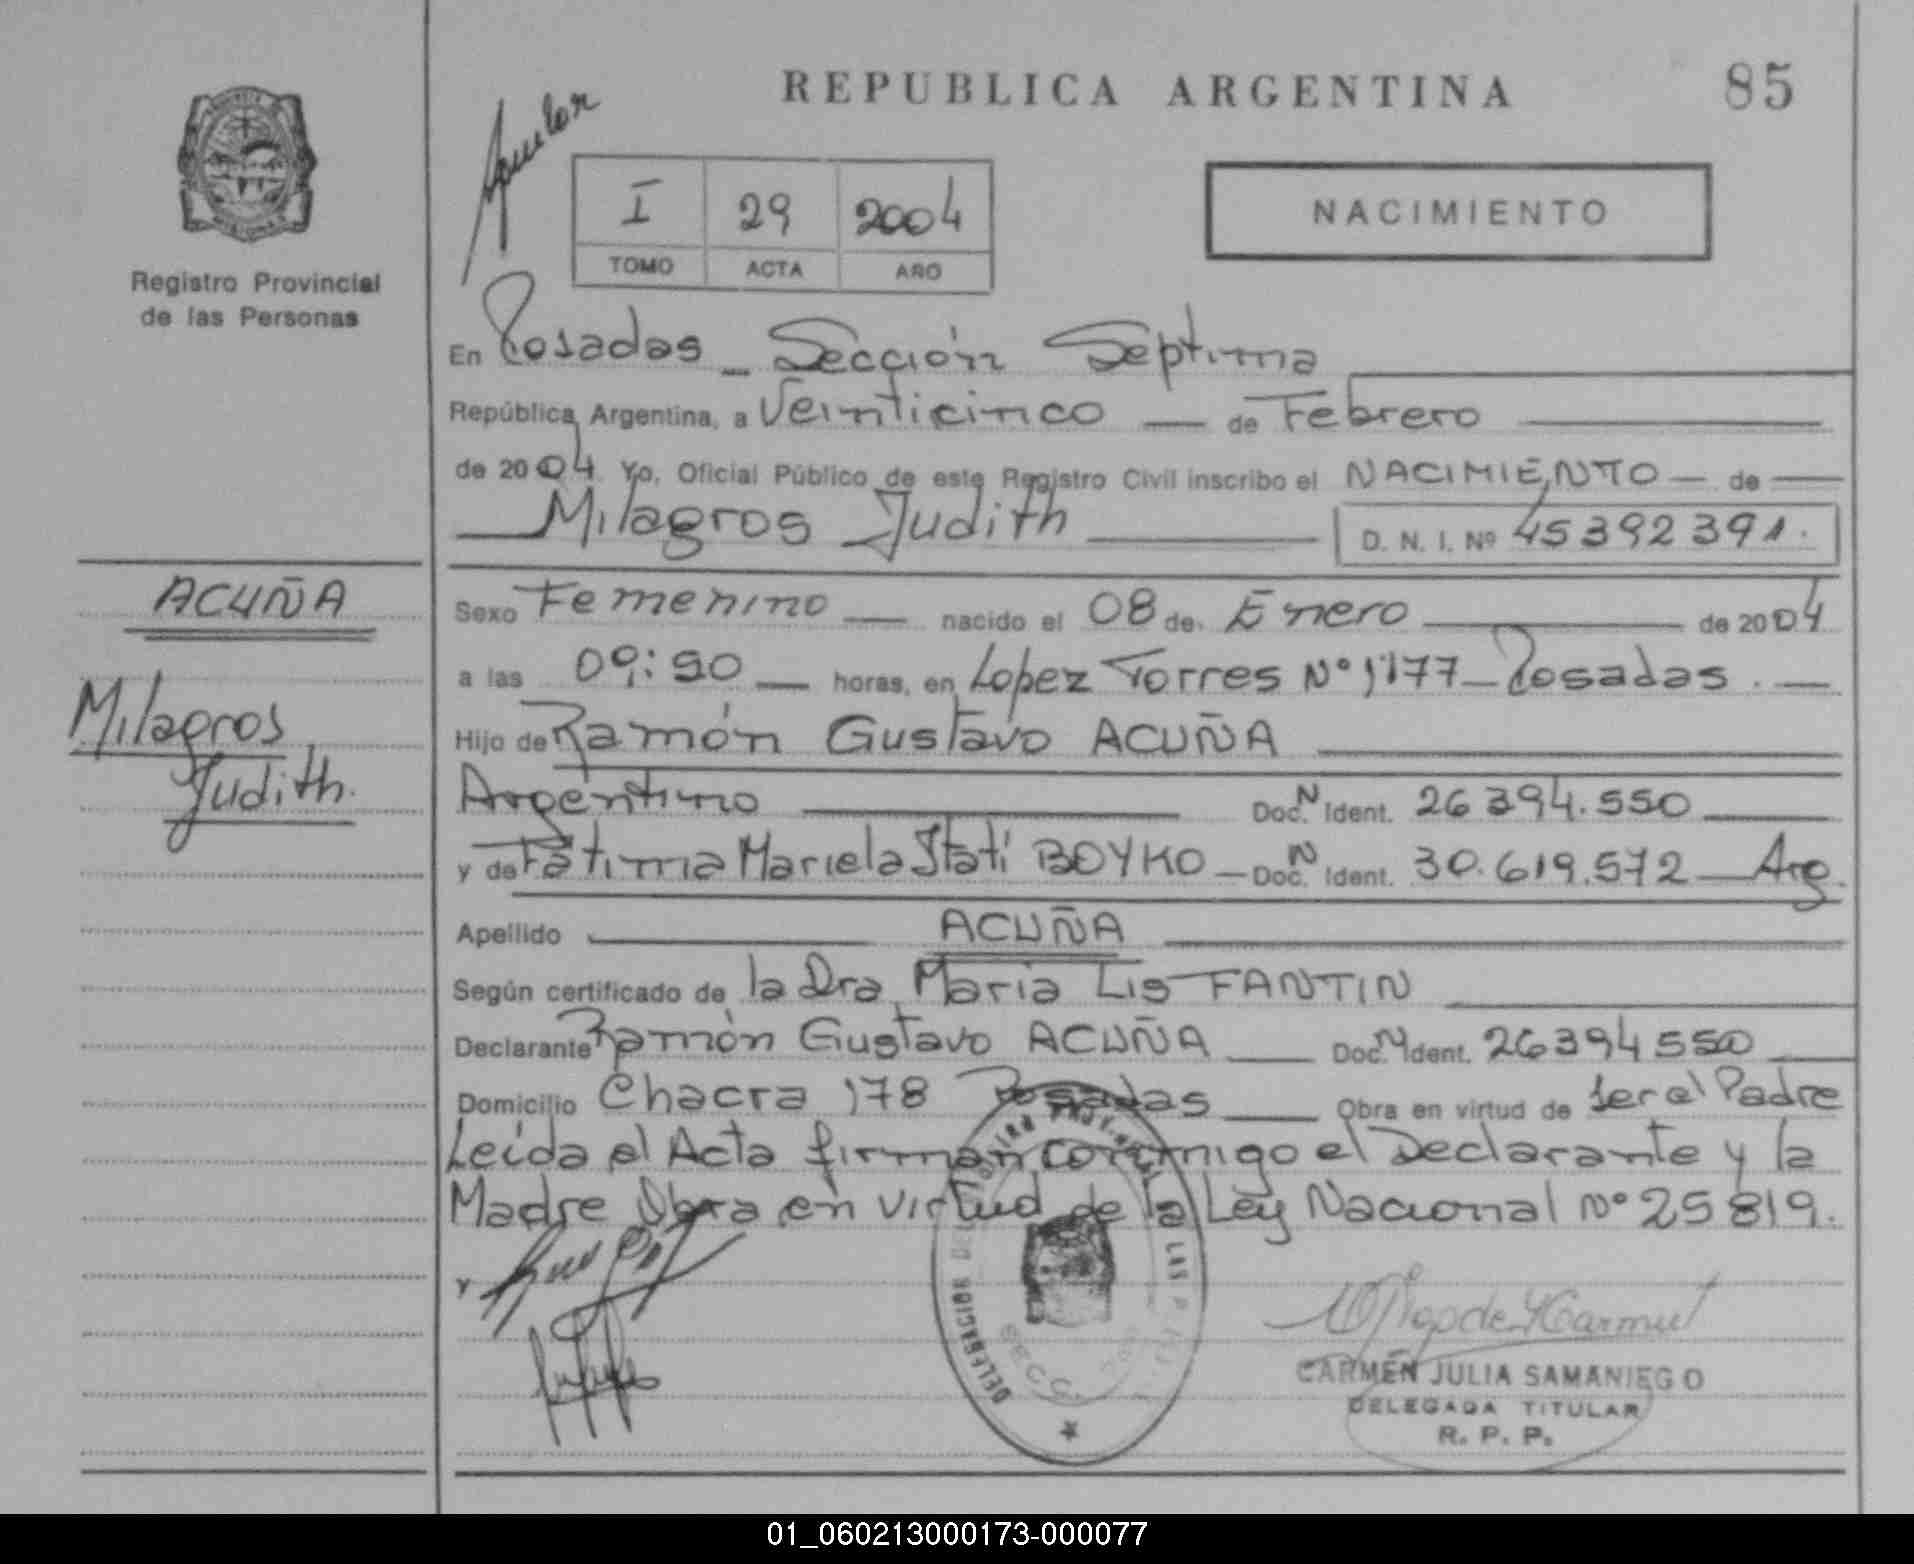 REPUBLICA ARGENTINA
85
Aguilar
I 29 2004
TOMO ACTA AÑO
NACIMIENTO
Registro Provincial
de las Personas
En Posadas - Sección Septima
República Argentina, a Veinticinco de Febrero
de 2004. Yo, Oficial Público de este Registro Civil inscribo el NACIMIENTO de
Milagros Judith D. N. I. Nº 45392391.
ACUÑA
Milagros
Judith.
Sexo Femenino nacido el 08 de Enero de 2004
a las horas, en Lopez Torres Nº 1177 - Posadas.
Hijo de Ramón Gustavo ACUÑA
Argentino Doc. N Ident. 26 394.550
y de Fátima Mariela Itatí BOYKO - Doc. N Ident. 30.619.572 - Arg.
Apellido ACUÑA
Según certificado de la Dra Maria Lis FANTIN
Declarante Ramón Gustavo ACUÑA Doc. N Ident. 26394550
Domicilio Chacra 178 Posadas Obra en virtud de ser el Padre
Leída el Acta firman conmigo el Declarante y la
Madre Obra en virtud de la Ley Nacional Nº 25819.
y
DELEGACION DEL LAS
SECC
CARMEN JULIA SAMANIEGO
DELEGADA TITULAR
R. P. P.
01_060213000173-000077